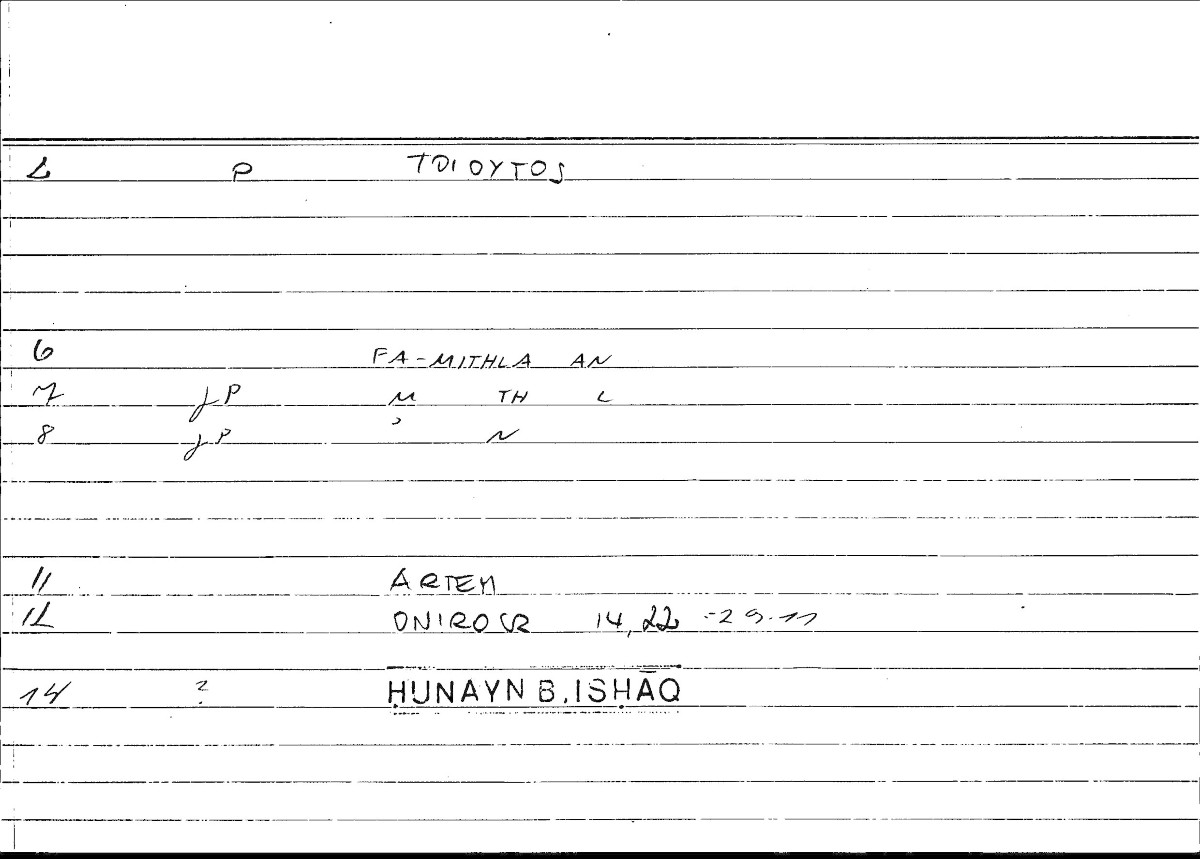 2 P ΤΟΙΟΥΤΟΣ
6 FA-MITHLA AN
7 JP M TH L
8 JP ʾ N
11 ARTEM
12 ONIROCR 14,22 -29.11
14 ? ḤUNAYN B. ISḤĀQ